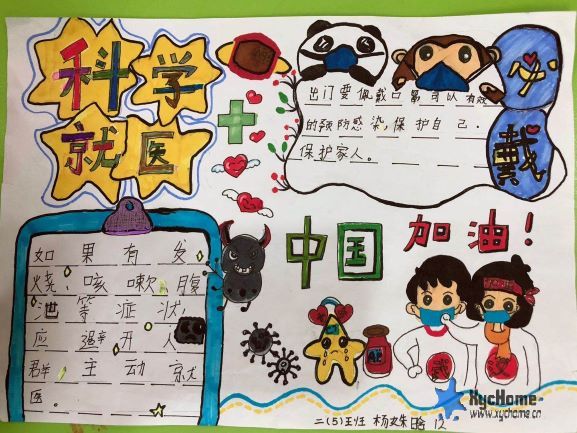 科学
就医
必
戴
出门要佩戴口罩可以有效
的预防感染,保护自己.
保护家人。
中国 加油!
如果有发
烧、咳嗽、腹
泄等症状,
应避开人
群主动就
医。
武 汉
二(5)班 杨
12
XycHome
www.xychome.cn